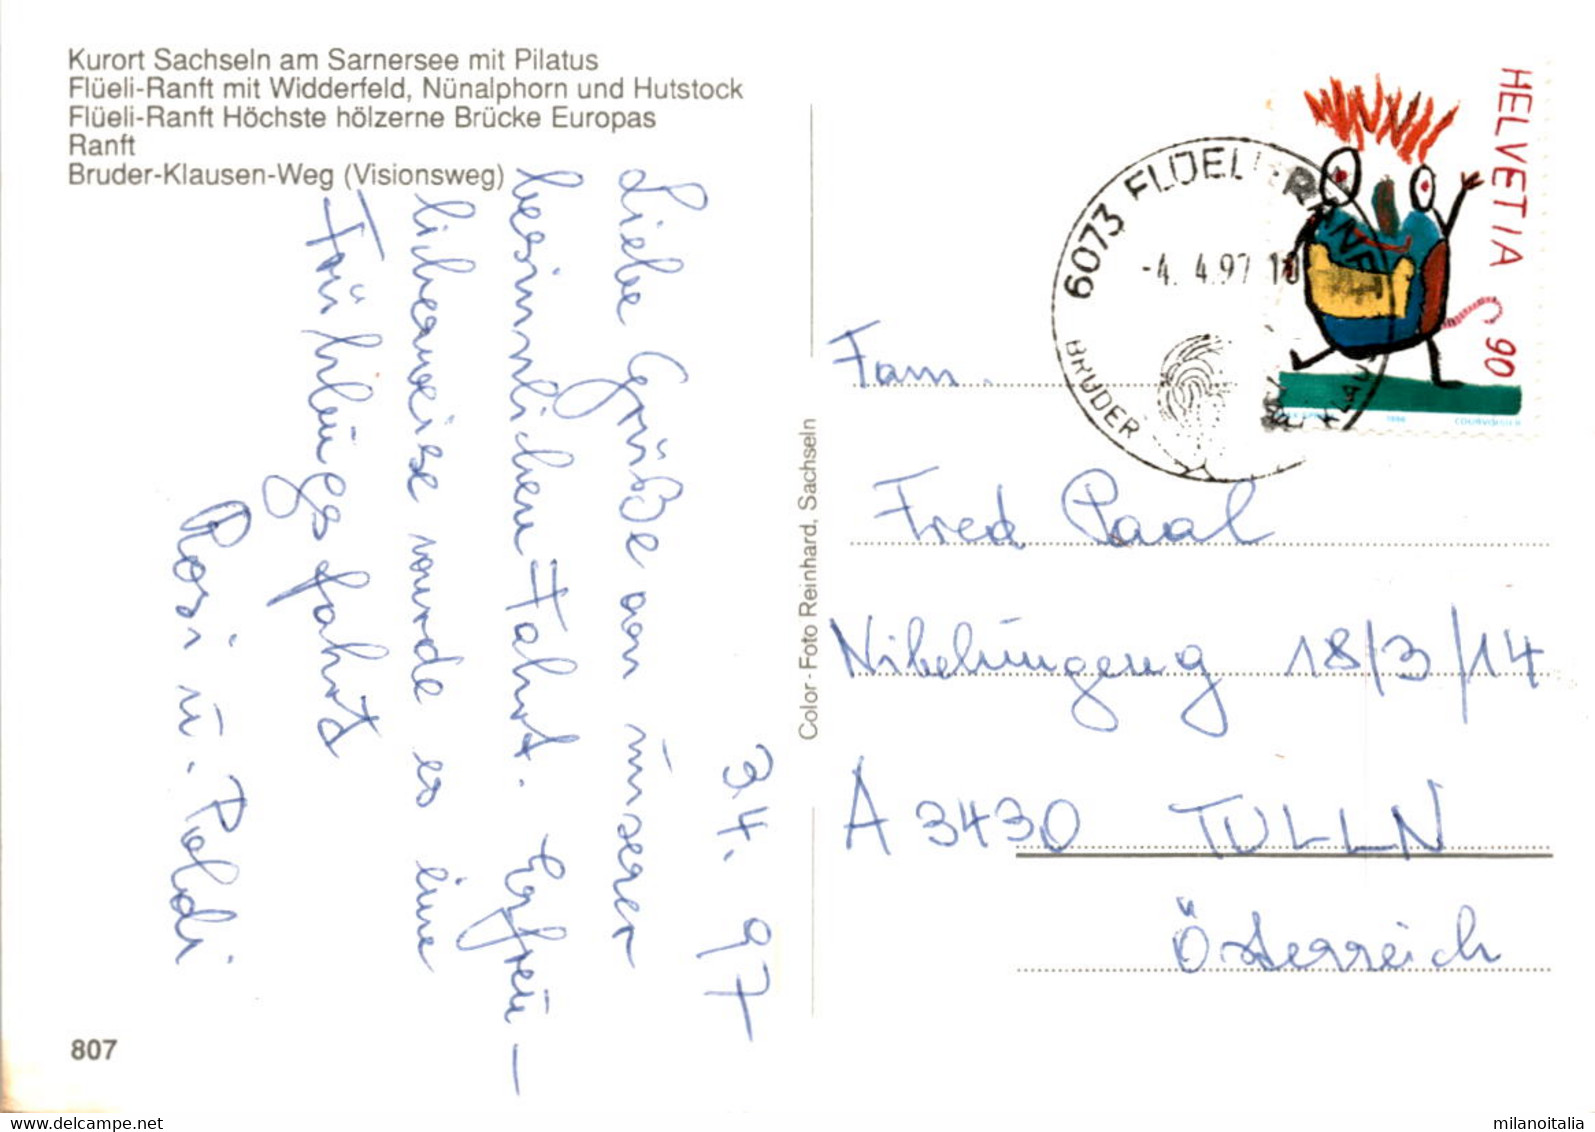 Kurort Sachseln am Sarnersee mit Pilatus
Flüeli-Ranft mit Widderfeld, Nünalphorn und Hutstock
Flüeli-Ranft Höchste hölzerne Brücke Europas
Ranft
Bruder-Klausen-Weg (Visionsweg)
3.4. 97
Liebe Grüße von unserer
besinnlichen Fahrt. Erfreu-
licherweise wurde es eine
Frühlingsfahrt
Rosi u. Poldi
807
Color-Foto Reinhard, Sachseln
HELVETIA
90
1996
COURVOISIER
6073 FLÜELI-RANFT
-4. 4.97 10
BRUDER KLAUS
Fam.
Fred Paal
Nibelungeng 18/3/14
A 3430 TULLN
Österreich
milanoitalia